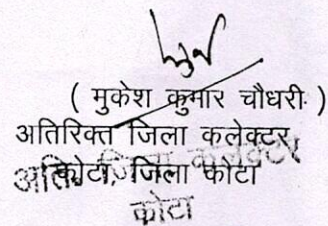 ( मुकेश कुमार चौधरी )
अतिरिक्त जिला कलेक्टर
कोटा, जिला कोटा
अति. जिला कलक्टर
कोटा